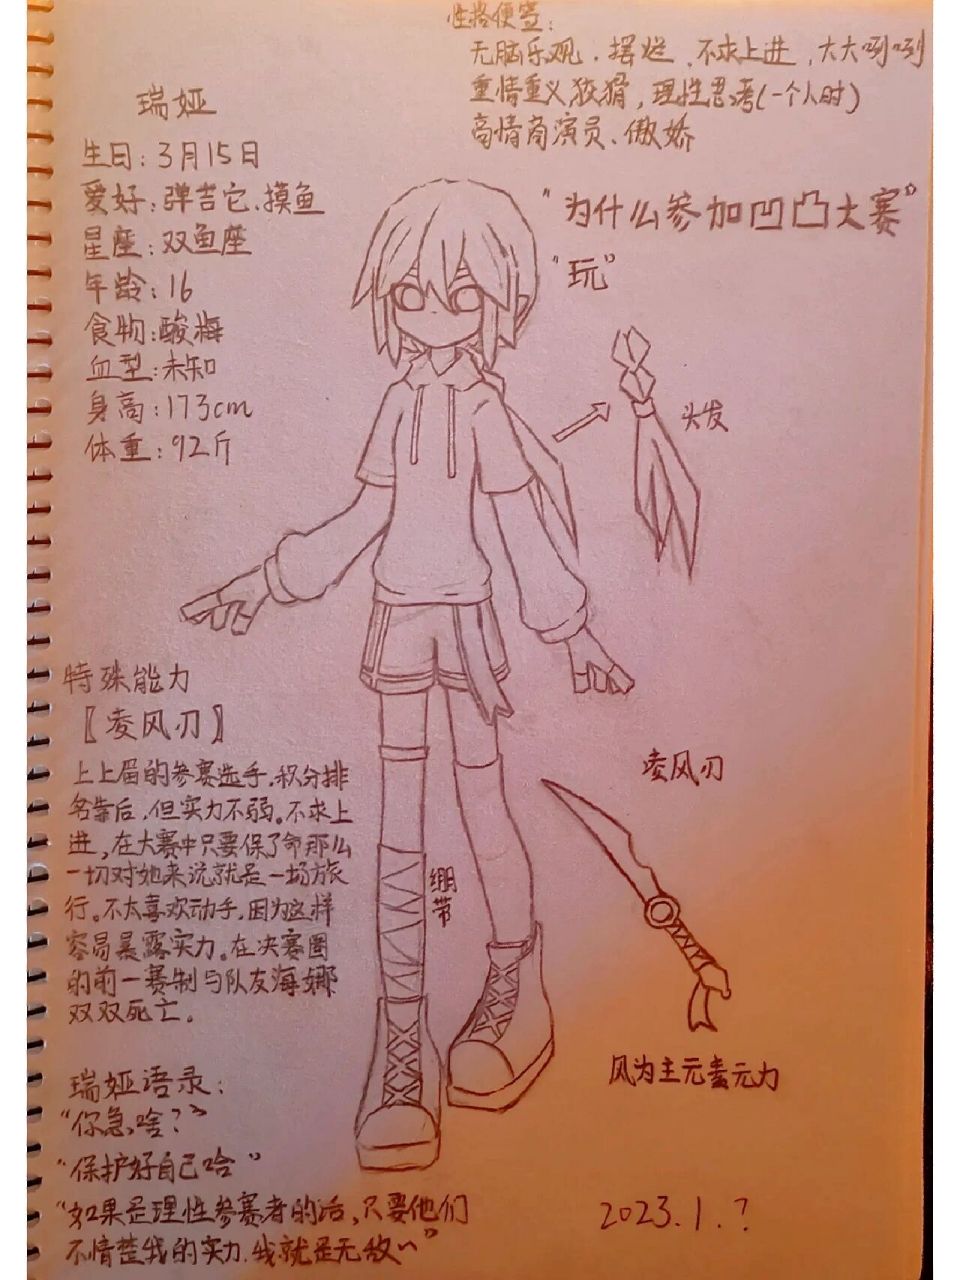 性格便签：
无脑乐观、摆烂、不求上进，大大咧咧
重情重义狡猾，理性思考(一个人时)
高情商演员、傲娇
瑞娅
生日：3月15日
爱好：弹吉它、摸鱼
星座：双鱼座
年龄：16
食物：酸梅
血型：未知
身高：173cm
体重：92斤
“为什么参加凹凸大赛”
“玩”
头发
特殊能力
〖凌风刃〗
上上届的参赛选手，积分排
名靠后，但实力不弱。不求上
进，在大赛中只要保了命那么
一切对她来说就是一场旅
行。不太喜欢动手，因为这样
容易暴露实力。在决赛圈
的前一赛制与队友海娜
双双死亡。
绷
带
凌风刃
风为主元素元力
瑞娅语录：
“你急啥？”
“保护好自己哈”
“如果是理性参赛者的话，只要他们
不清楚我的实力，我就是无敌~”
2023.1.?